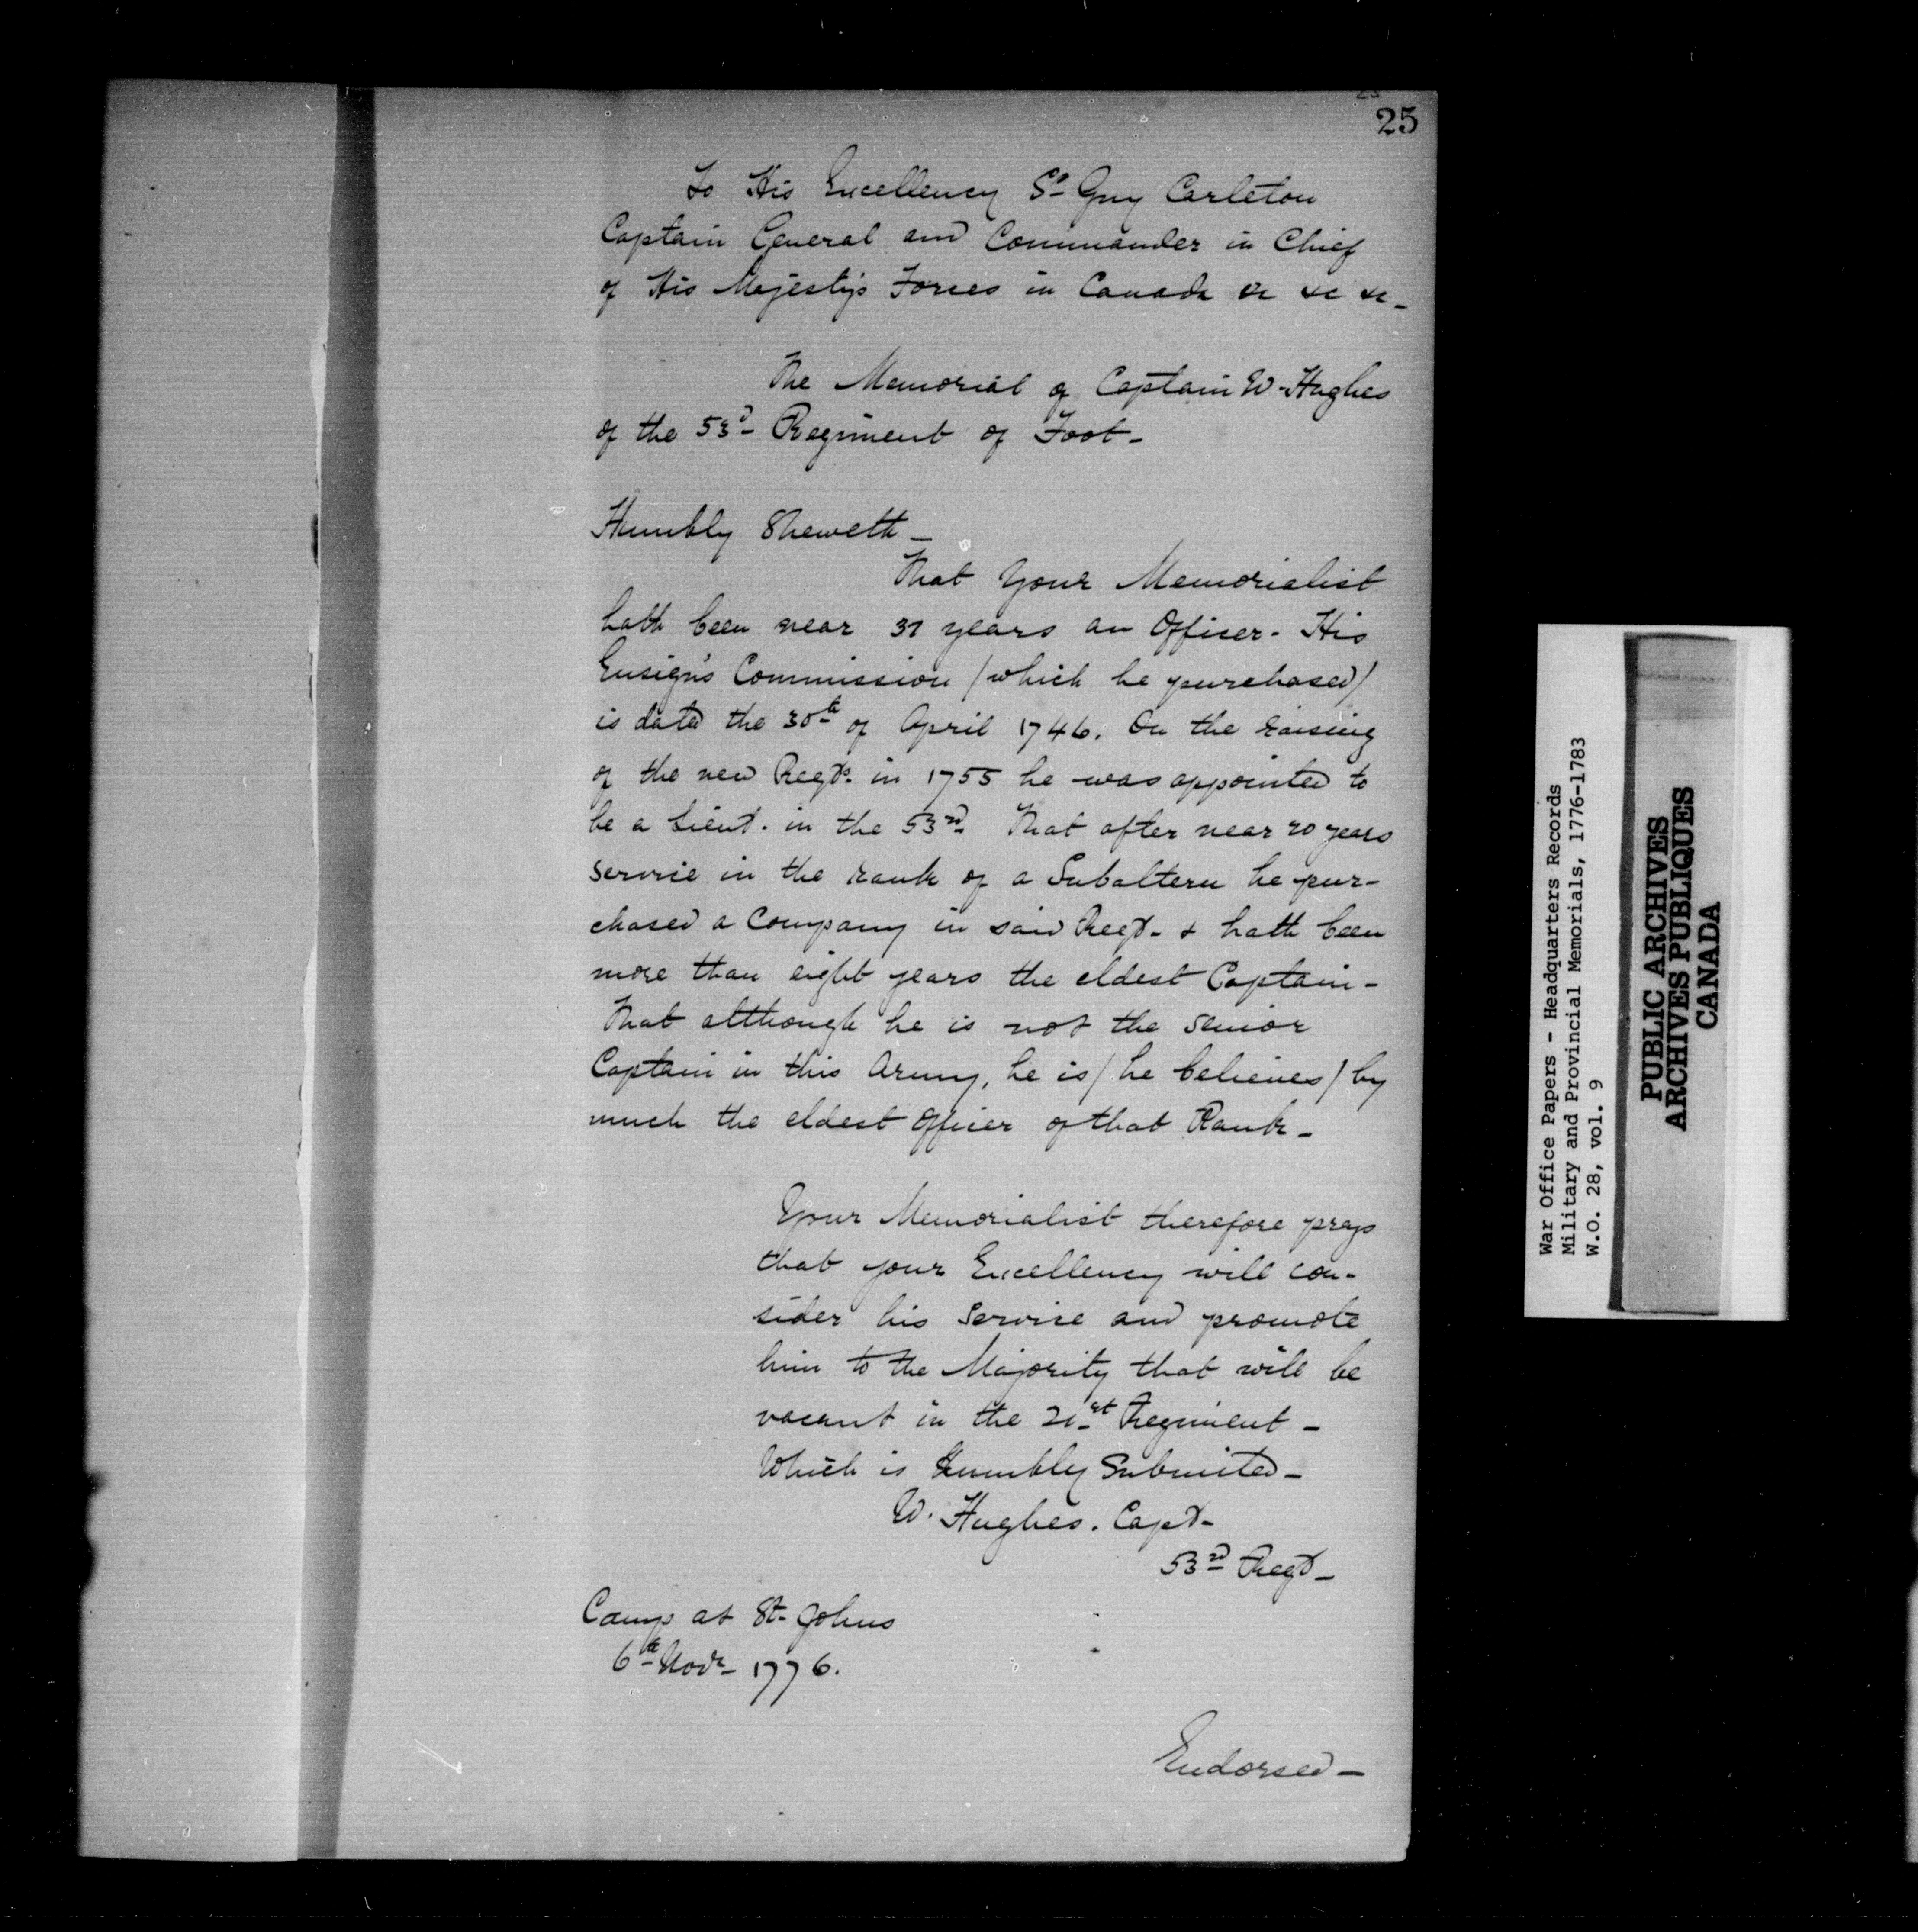 25
To His Excellency Sr Guy Carleton
Captain General and Commander in Chief
of His Majesty's Forces in Canada &c &c &c -
The Memorial of Captain W. Hughes
of the 53d Regiment of Foot -
Humbly Sheweth -
That Your Memorialist
hath been near 31 years an Officer. His
Ensign's Commission / which he purchased /
is dated the 30th of April 1746. On the raising
of the new Regts. in 1755 he was appointed to
be a Lieut. in the 53rd. That after near 20 years
service in the rank of a Subaltern he pur-
chased a Company in said Regt - & hath been
more than eight years the eldest Captain -
That although he is not the Senior
Captain in this Army, he is / he believes / by
much the eldest Officer of that Rank -
Your Memorialist therefore prays
that your Excellency will con-
sider his Service and promote
him to the Majority that will be
vacant in the 21st Regiment -
Which is Humbly Submited -
W. Hughes. Capt -
53rd Regt -
Camp at St. Johns
6th Novr - 1776.
Endorsed -
War Office Papers - Headquarters Records
Military and Provincial Memorials, 1776-1783
W.O. 28, vol. 9
PUBLIC ARCHIVES
ARCHIVES PUBLIQUES
CANADA